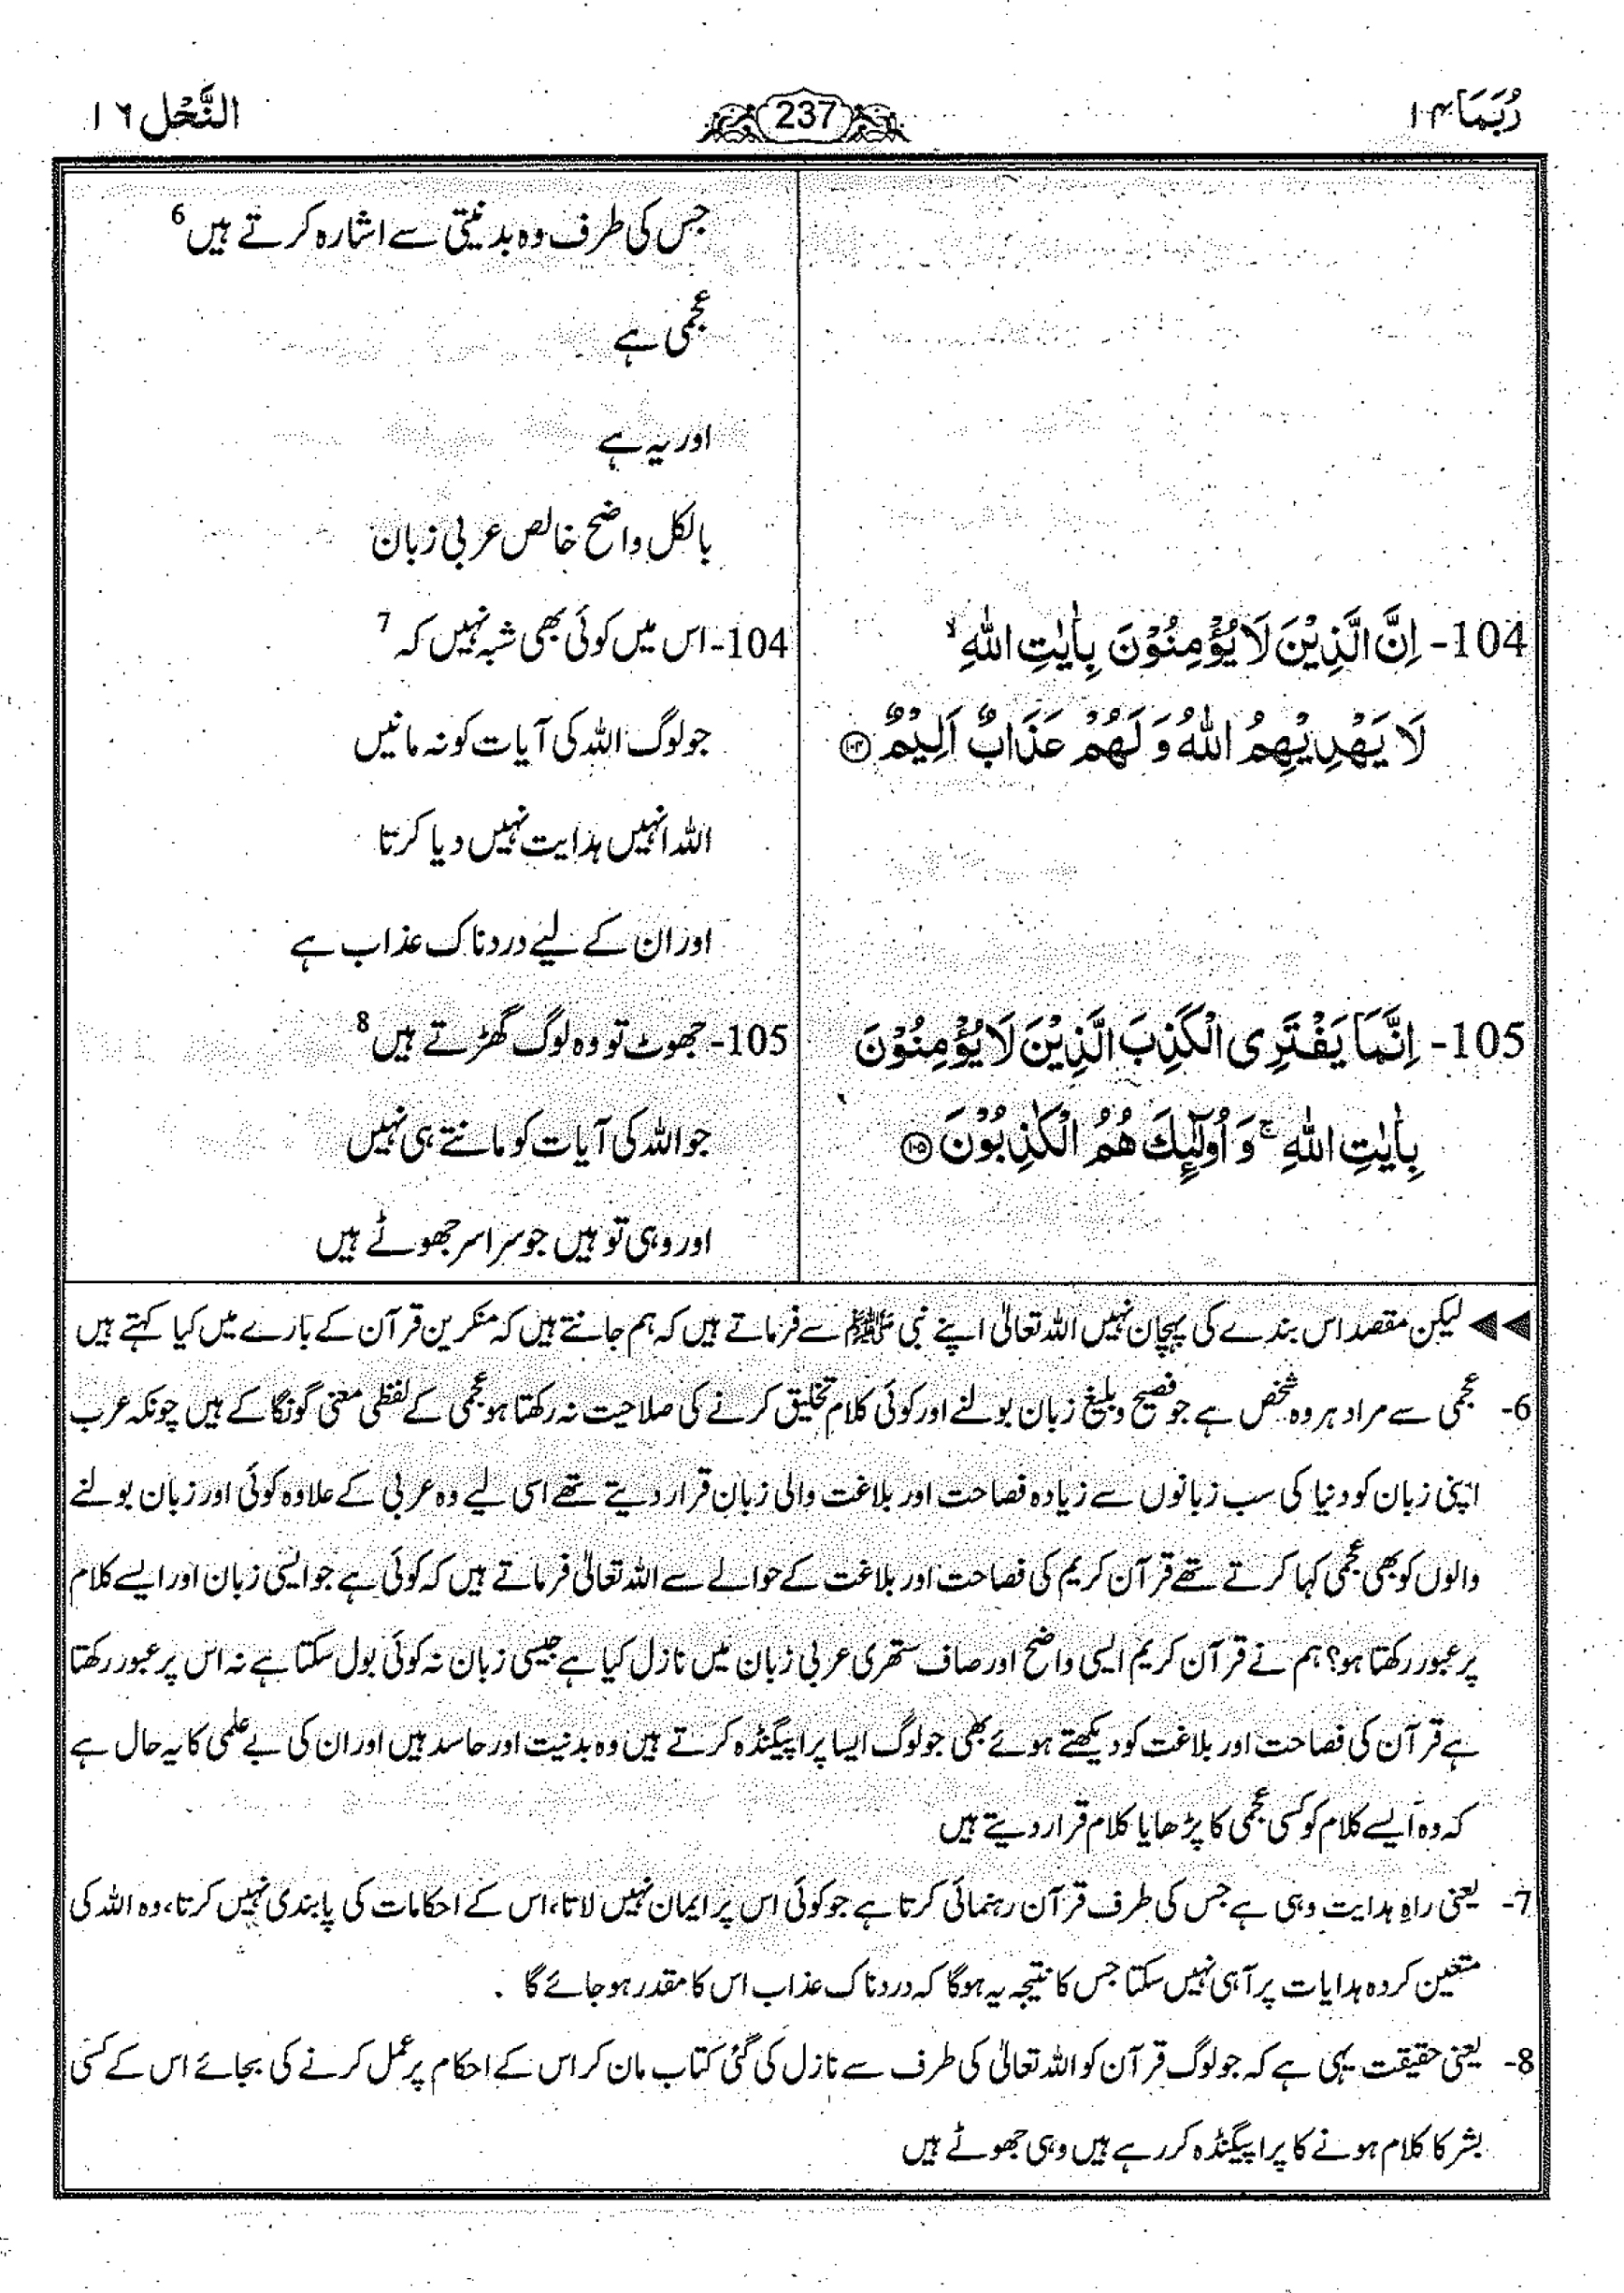 رُبَمَا ۱۴
237
النَّحْل ۱۶
جس کی طرف وہ بدنیتی سے اشارہ کرتے ہیں 6
عجمی ہے
اور یہ ہے
بالکل واضح خالص عربی زبان
104- اِنَّ الَّذِيْنَ لَا يُؤْمِنُوْنَ بِاٰيٰتِ اللّٰهِ ۙ
لَا يَهْدِيْهِمُ اللّٰهُ وَ لَهُمْ عَذَابٌ اَلِيْمٌ ۝۱۰۴
104- اس میں کوئی بھی شبہ نہیں کہ 7
جو لوگ اللہ کی آیات کو نہ مانیں
اللہ انہیں ہدایت نہیں دیا کرتا
اور ان کے لیے دردناک عذاب ہے
105- اِنَّمَا يَفْتَرِى الْكَذِبَ الَّذِيْنَ لَا يُؤْمِنُوْنَ
بِاٰيٰتِ اللّٰهِ ۚ وَ اُولٰٓئِكَ هُمُ الْكٰذِبُوْنَ ۝۱۰۵
105- جھوٹ تو وہ لوگ گھڑتے ہیں 8
جو اللہ کی آیات کو مانتے ہی نہیں
اور وہی تو ہیں جو سراسر جھوٹے ہیں
◄◄ لیکن مقصد اس بندے کی پہچان نہیں اللہ تعالیٰ اپنے نبی ﷺ سے فرماتے ہیں کہ ہم جانتے ہیں کہ منکرین قرآن کے بارے میں کیا کہتے ہیں
6- عجمی سے مراد ہر وہ شخص ہے جو فصیح و بلیغ زبان بولنے اور کوئی کلام تخلیق کرنے کی صلاحیت نہ رکھتا ہو عجمی کے لفظی معنی گونگا کے ہیں چونکہ عرب
اپنی زبان کو دنیا کی سب زبانوں سے زیادہ فصاحت اور بلاغت والی زبان قرار دیتے تھے اسی لیے وہ عربی کے علاوہ کوئی اور زبان بولنے
والوں کو بھی عجمی کہا کرتے تھے قرآن کریم کی فصاحت اور بلاغت کے حوالے سے اللہ تعالیٰ فرماتے ہیں کہ کوئی ہے جو ایسی زبان اور ایسے کلام
پر عبور رکھتا ہو؟ ہم نے قرآن کریم ایسی واضح اور صاف ستھری عربی زبان میں نازل کیا ہے جیسی زبان نہ کوئی بول سکتا ہے نہ اس پر عبور رکھتا
ہے قرآن کی فصاحت اور بلاغت کو دیکھتے ہوئے بھی جو لوگ ایسا پراپیگنڈہ کرتے ہیں وہ بدنیت اور حاسد ہیں اور ان کی بے علمی کا یہ حال ہے
کہ وہ ایسے کلام کو کسی عجمی کا پڑھایا کلام قرار دیتے ہیں
7- یعنی راہِ ہدایت وہی ہے جس کی طرف قرآن رہنمائی کرتا ہے جو کوئی اس پر ایمان نہیں لاتا، اس کے احکامات کی پابندی نہیں کرتا، وہ اللہ کی
متعین کردہ ہدایات پر آ ہی نہیں سکتا جس کا نتیجہ یہ ہوگا کہ دردناک عذاب اس کا مقدر ہو جائے گا
8- یعنی حقیقت یہی ہے کہ جو لوگ قرآن کو اللہ تعالیٰ کی طرف سے نازل کی گئی کتاب مان کر اس کے احکام پر عمل کرنے کی بجائے اس کے کسی
بشر کا کلام ہونے کا پراپیگنڈہ کر رہے ہیں وہی جھوٹے ہیں